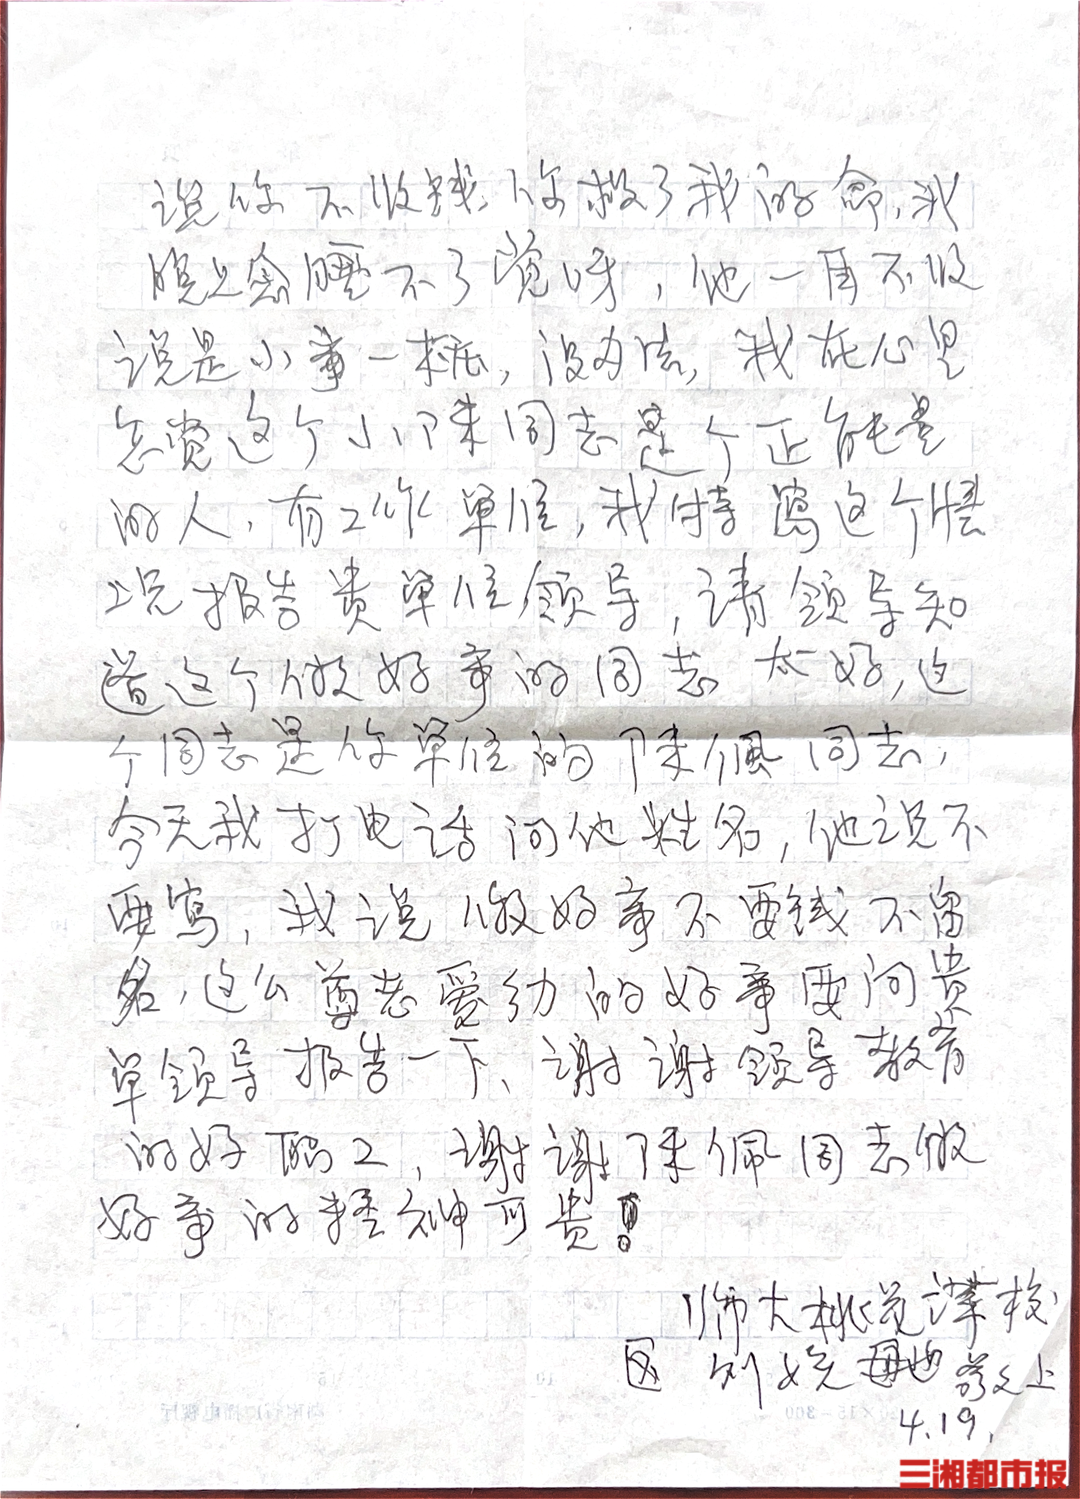 说你不收钱，你救了我的命，我
晚上会睡不了觉呀，他一再不收
说是小事一桩，没办法，我在心里
感觉这个小陈同志是个正能量
的人，有工作单位，我特写这个情
况报告贵单位领导，请领导知
道这个做好事的同志太好，这
个同志是你单位的陈佩同志，
今天我打电话问他姓名，他说不
要写，我说做好事不要钱不留
名，这么尊老爱幼的好事要向贵
单领导报告一下、谢谢领导教育
的好职工，谢谢陈佩同志做
好事的精神可贵！
师大桃 校
区 刘 上
4.19.
三湘都市报